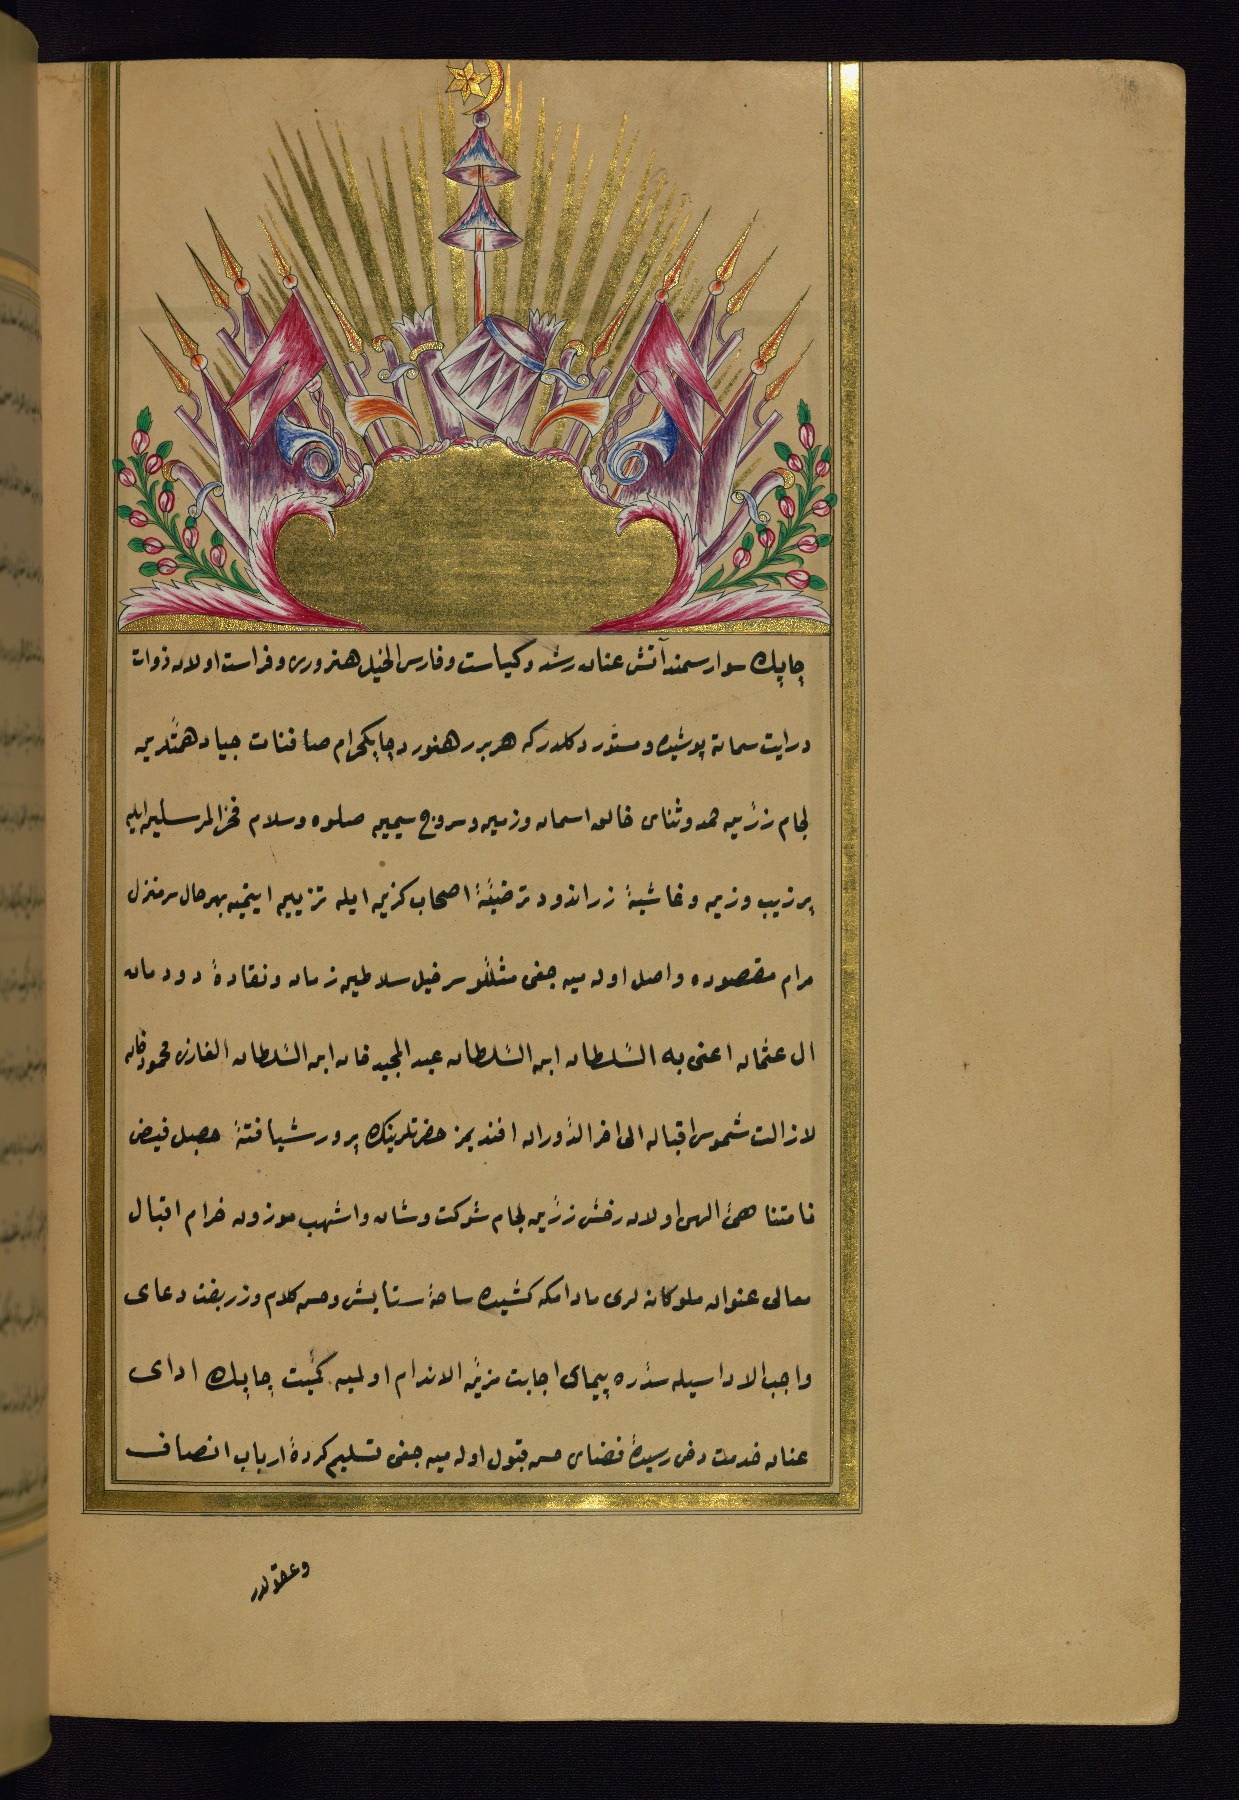 چاپك سوار سمند آتش عنان رشد و كیاست و فارس الخیل هنروری و فراست اولان ذوات
درایت سماته پوشیده و مستور دكلدر كه هر بر رهنورد چابكخرام صافنات جیاد همتلرین
لجام زرین حمد و ثنای خالق اسمان و زمین و سروج سیمین صلوه و سلام فخر المرسلین ایله
پر زیب و زین و غاشیهٔ زراندود ترضیهٔ اصحاب كزین ایله تزیین ایتمین بهرحال سرمنزل
مرام مقصوده واصل اولمیه جغی مثللو سرخیل سلاطین زمان و نقادهٔ دودمان
ال عثمان اعنی به السلطان ابن السلطان عبد المجید خان ابن السلطان الغازی محمود خان
لازالت شموس اقباله الی اخر الدوران افندیمز حضرتلرینك پرورشیافتهٔ حصبل فیض
نامتناهیٔ الهی اولان رخش زرین لجام شوكت و شان و اشهب موزون خرام اقبال
معالی عنوان ملوكانه لری مادامكه كشیده ساحهٔ ستایش و حسن كلام و زربفت دعای
واجب الاداسیله سدره پیمای اجابت مزین الاندام اولمیه كمیت چاپك ادای
عنان خدمت دخی رسیدهٔ فضای حسن قبول اولمیه جغی تسلیم كردهٔ ارباب انصاف
وعقولدر